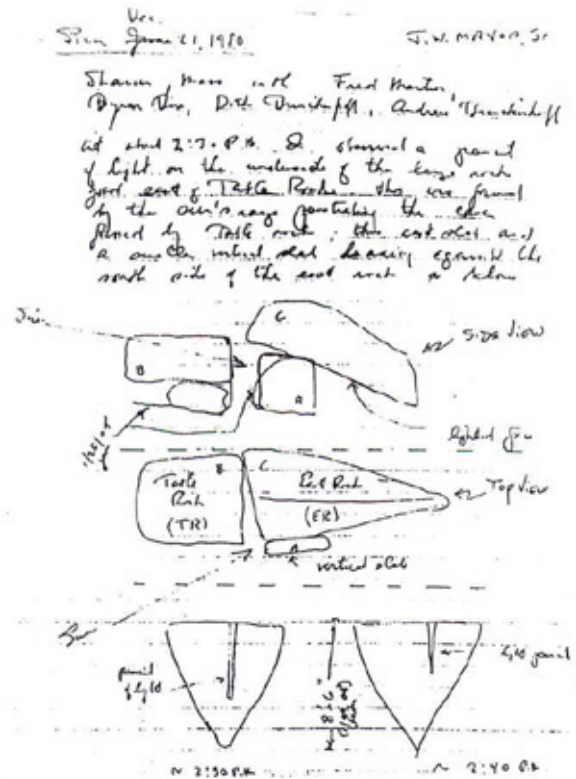 June 21, 1980 J. W. MAYOR, Jr
Sharon, Mass with Fred Martin,
Byron Dix, , Andrew
at about 2:30 P.M. I observed a pencil
of light on the underside of the large rock
just east of Table Rock. this was formed
by the sun's rays penetrating the
formed by Table rock, the east slab and
a smaller vertical slab leaning against the
south side of the east rock as below
Sun
C
B
A
Side View
light
Table
Rock
(TR)
B
C
East Rock
(ER)
Top View
A
vertical slab
Sun
pencil
of light
8' 6"
light pencil
~ 2:30 P.M.
~ 2:40 P.M.